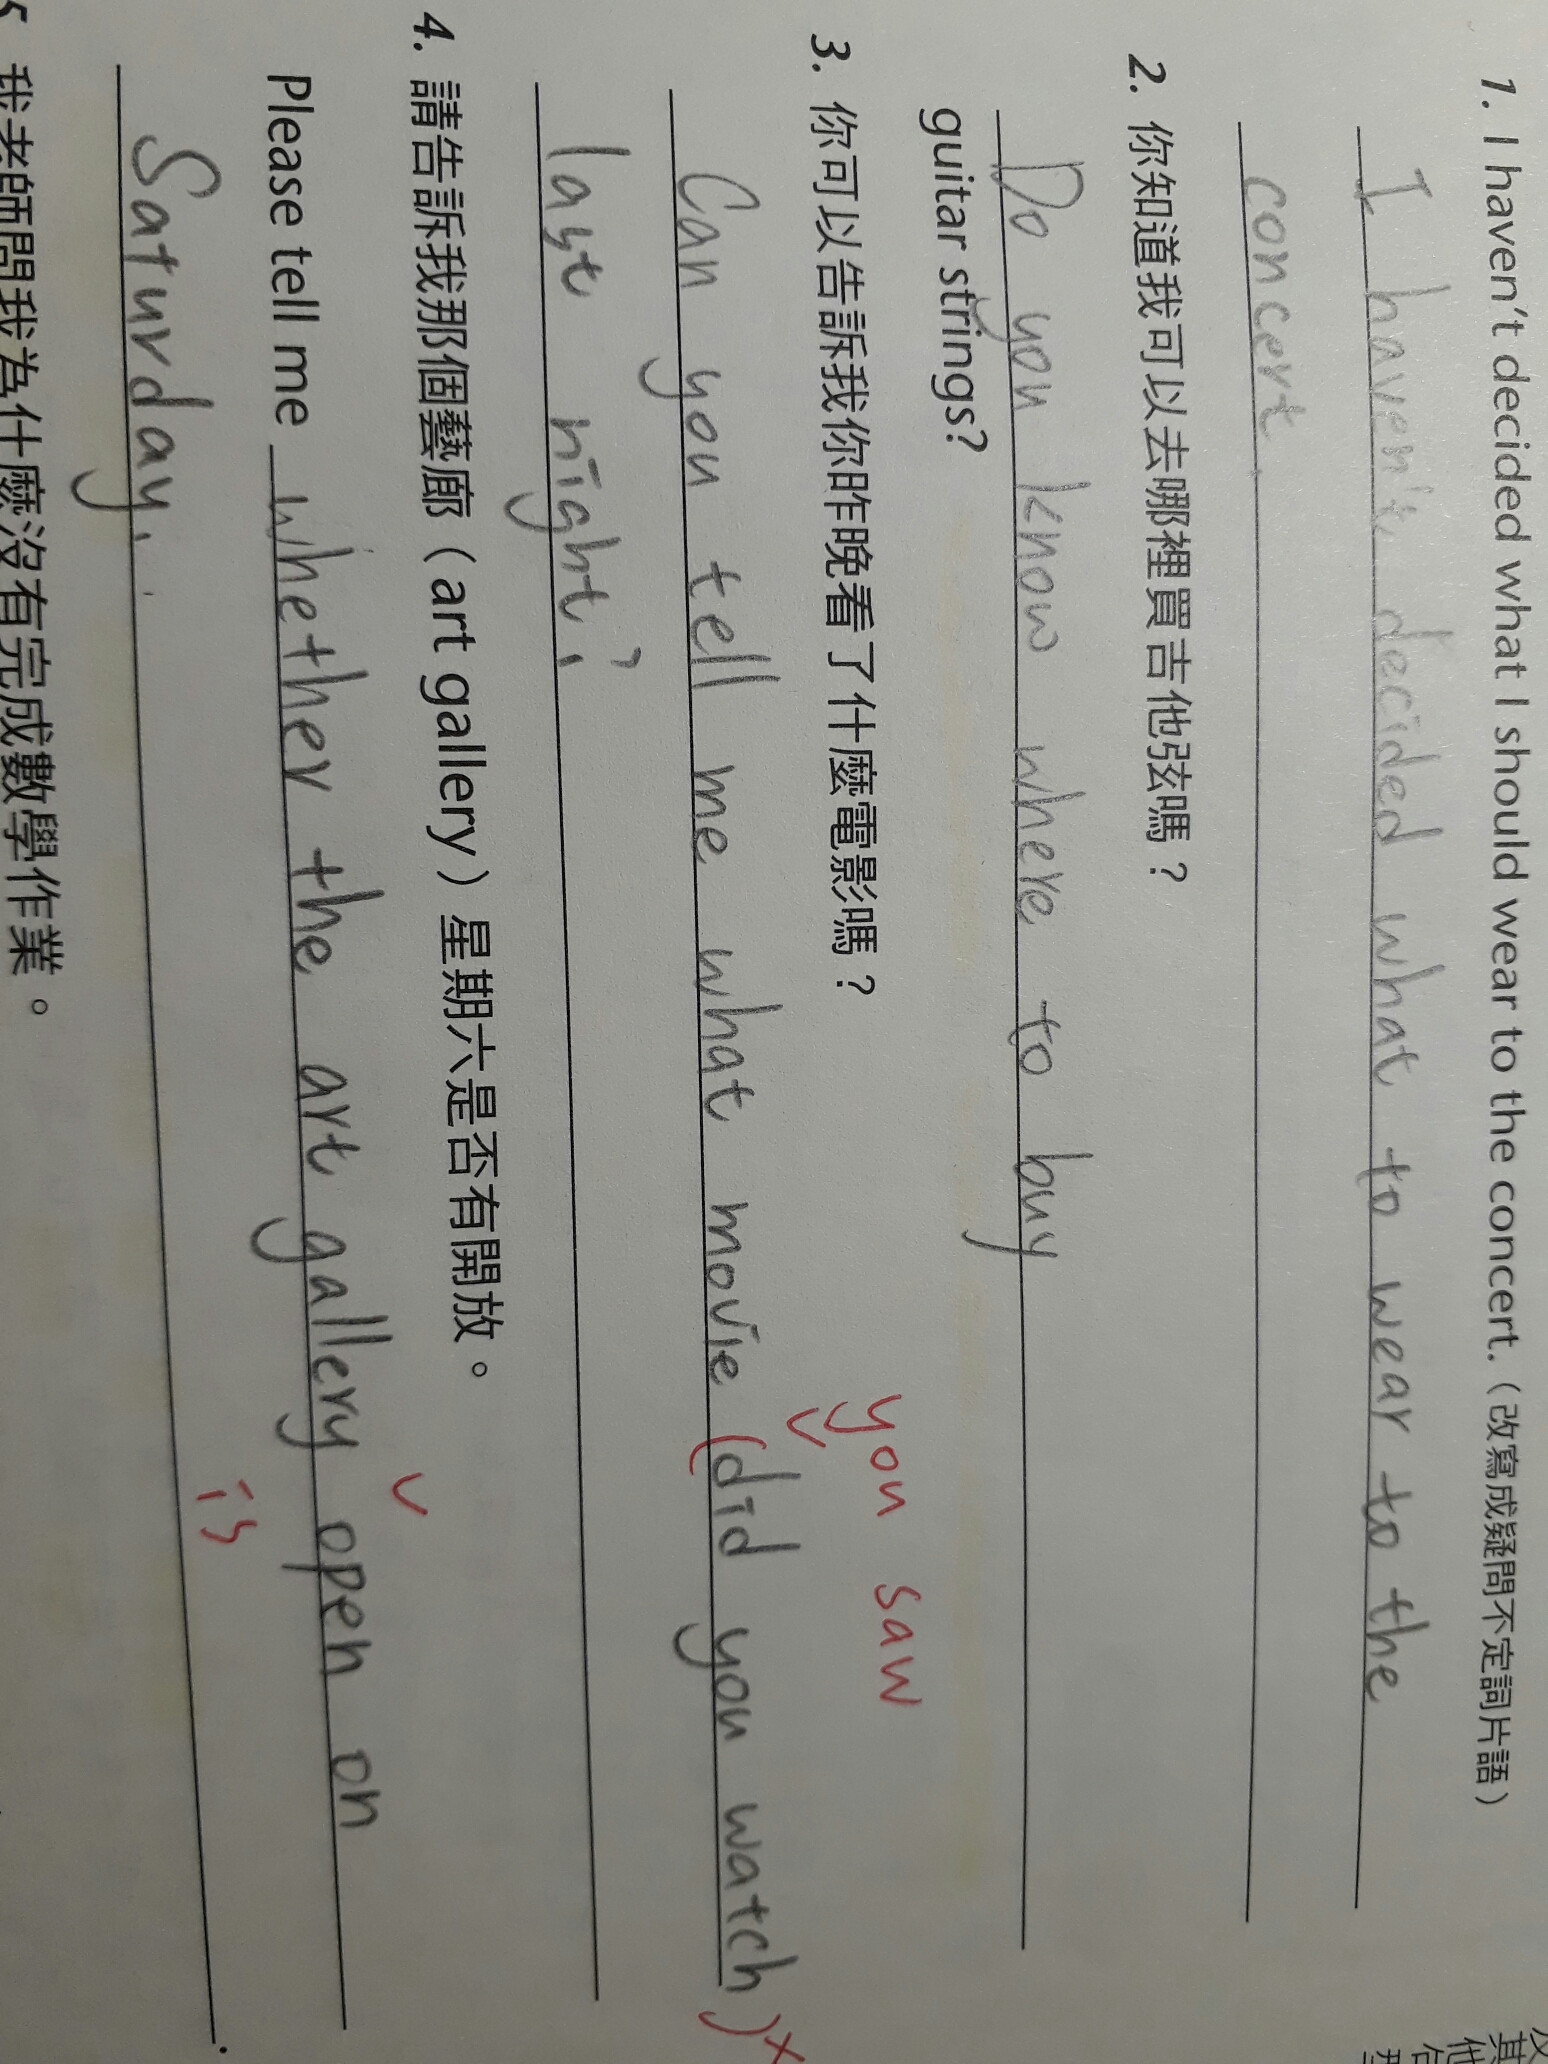 1. I haven't decided what I should wear to the concert.（改寫成疑問不定詞片語）
I haven't decided what to wear to the
concert.
2. 你知道我可以去哪裡買吉他弦嗎？
Do you know where to buy
guitar strings?
3. 你可以告訴我你昨晚看了什麼電影嗎？
you saw
Can you tell me what movie (did you watch) x
last night?
4. 請告訴我那個藝廊（art gallery）星期六是否有開放。
Please tell me whether the art gallery open on
is
Saturday.
5. 我老師問我為什麼沒有完成數學作業。